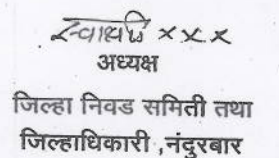 स्वाक्षरी x x x
अध्यक्ष
जिल्हा निवड समिती तथा
जिल्हाधिकारी ,नंदुरबार